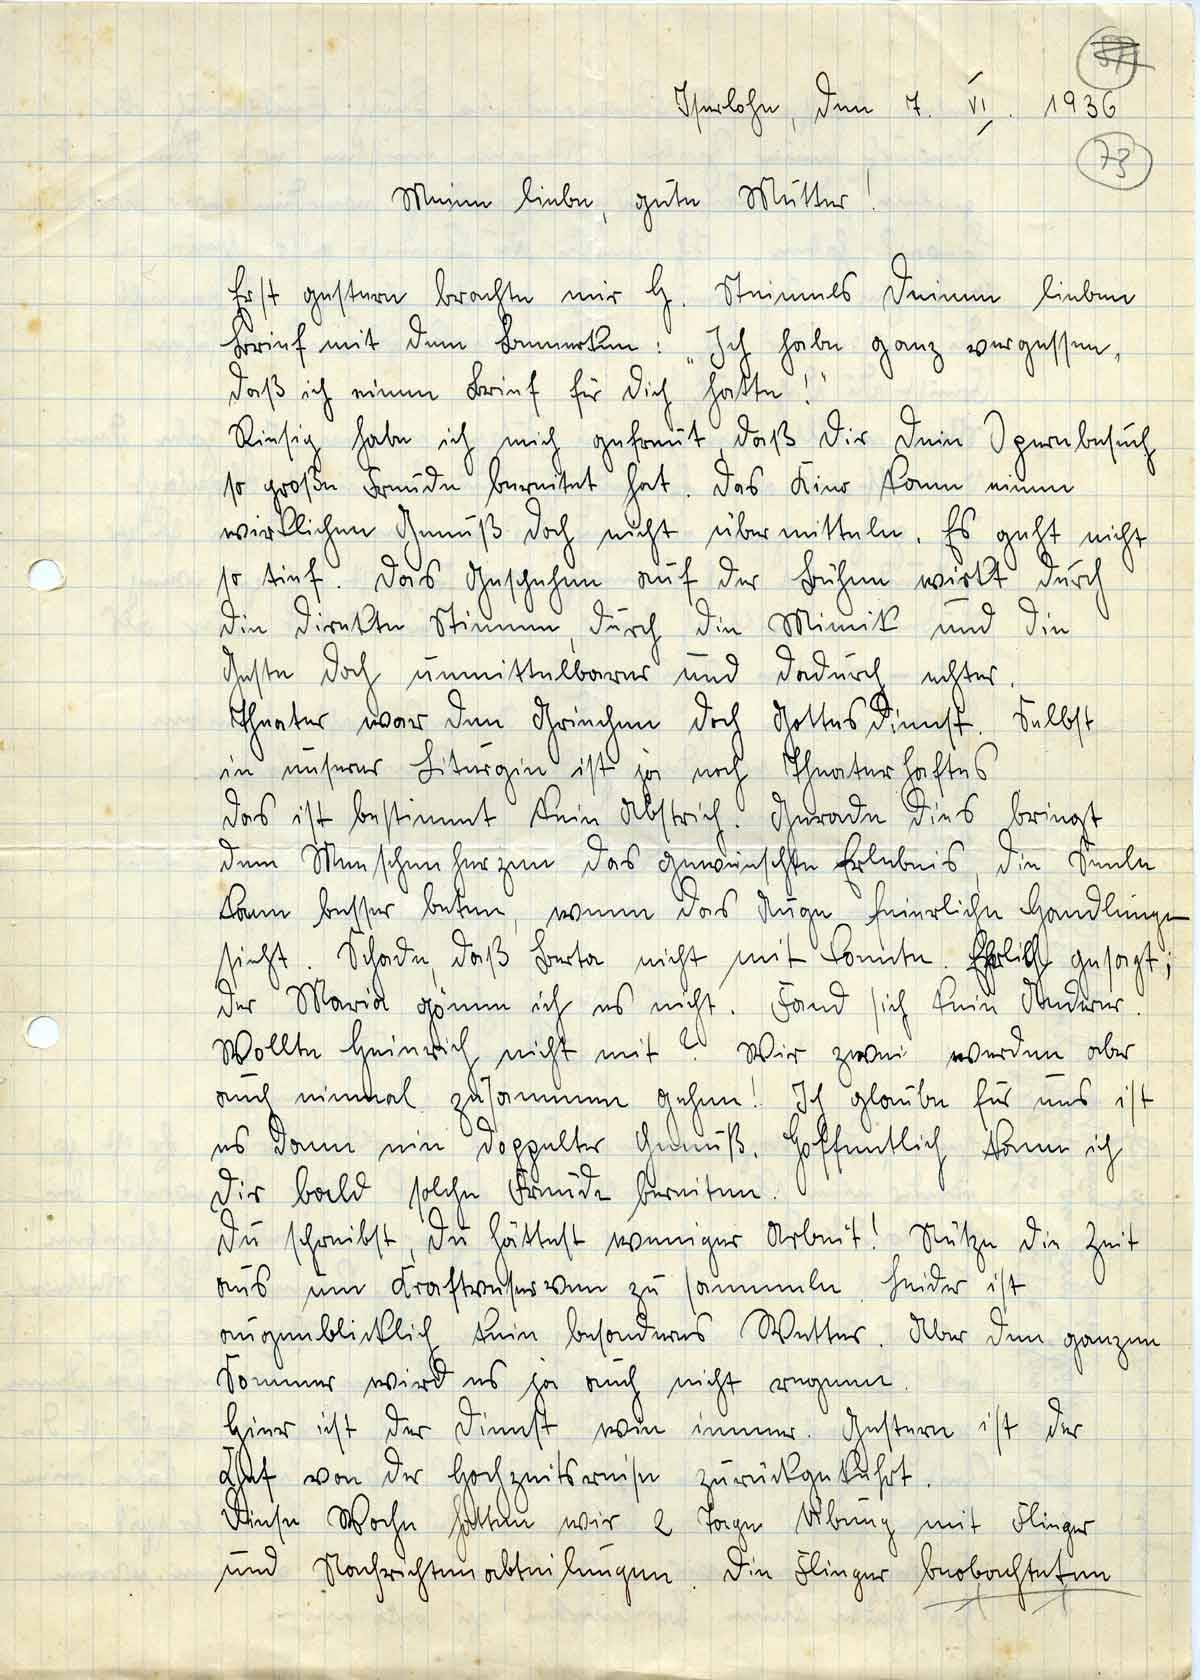 Iserlohn, den 7. VI. 1936
73
Meine liebe, gute Mutter!
Erst gestern brachte mir H. Steimels Deinen lieben
Brief mit dem Bemerken: „Ich habe ganz vergessen,
daß ich einen Brief für Dich hatte!“
Riesig habe ich mich gefreut, daß Dir Dein Opernbesuch
so große Freude bereitet hat. Das Kino kann einen
wirklichen Genuß doch nicht übermitteln. Es geht nicht
so tief. Das Geschehen auf der Bühne wirkt durch
die direkte Stimme, durch die Mimik und die
Geste doch unmittelbarer und dadurch echter.
Theater war den Griechen doch Gottesdienst. Selbst
in unserer Liturgie ist ja noch Theaterhaftes
das ist bestimmt kein Abstrich. Gerade dies bringt
dem Menschenherzen das gewünschte Erlebnis, die Seele
kann besser beten, wenn das Auge feierliche Handlungen
sieht. Schade, daß Berta nicht mit konnte. Ehrlich gesagt;
der Maria gönne ich es nicht. Fand sich kein Anderer.
Wollte Heinrich nicht mit? Wir zwei werden aber
auch einmal zusammen gehen! Ich glaube für uns ist
es dann ein doppelter Genuß. Hoffentlich kann ich
Dir bald solche Freude bereiten.
Du schreibst, Du hättest weniger Arbeit! Nütze die Zeit
aus um Kraftreserven zu sammeln. Leider ist
augenblicklich kein besonderes Wetter. Aber den ganzen
Sommer wird es ja auch nicht regnen.
Hier ist der Dienst wie immer. Gestern ist der
Chef von der Hochzeitsreise zurückgekehrt.
Diese Woche hatten wir 2 Tage Übung mit Flieger
und Nachrichtenabteilungen. Die Flieger beobachteten